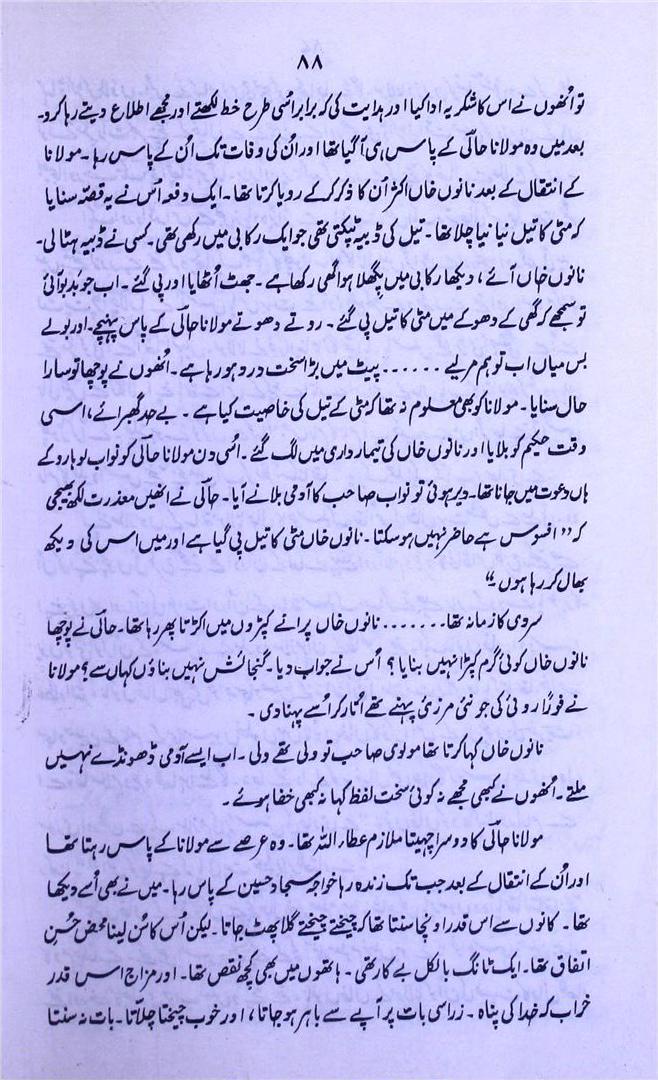 ۸۸
تو اُنھوں نے اس کا شکریہ ادا کیا اور ہدایت کی کہ برابر اسُی طرح خط لکھتے اور مجھے اطلاع دیتے رہا کرو۔
بعد میں وہ مولانا حالؔی کے پاس ہی آ گیا تھا اور اُن کی وفات تک اُن کے پاس رہا ۔ مولانا
کے انتقال کے بعد نانوں خاں اکثر اُن کا ذکر کر کے رویا کرتا تھا ۔ ایک دفعہ اُس نے یہ قصّہ سنایا
کہ مٹی کا تیل نیا نیا چلا تھا ۔ تیل کی ڈبیہ ٹپکتی تھی جو ایک رکابی میں رکھی تھی ۔ کسی نے ڈبیہ ہٹا لی۔
نانوں خاں آئے ، دیکھا رکابی میں پگھلا ہوا گھی رکھا ہے ۔ جھٹ اُٹھایا اور پی گئے ۔ اب جو بدبو آئی
تو سمجھے کہ گھی کے دھوکے میں مٹی کا تیل پی گئے ۔ روتے دھوتے مولانا حالؔی کے پاس پہنچے۔ اور بولے
بس میاں اب تو ہم مر لیے ...... پیٹ میں بڑا سخت درد ہو رہا ہے ۔ اُنھوں نے پوچھا تو سارا
حال سنایا ۔ مولانا کو بھی معلوم نہ تھا کہ مٹی کے تیل کی خاصیت کیا ہے ۔ بے حد گھبرائے، اسی
وقت حکیم کو بلایا اور نانوں خاں کی تیمارداری میں لگ گئے ۔ اسُی دن مولانا حالؔی کو نواب لوہارو کے
ہاں دعوت میں جانا تھا۔ دیر ہوئی تو نواب صاحب کا آدمی بلانے آیا ۔ حالؔی نے انھیں معذرت لکھ بھیجی
کہ ”افسوس ہے حاضر نہیں ہو سکتا ۔ نانوں خاں مٹی کا تیل پی گیا ہے اور میں اس کی دیکھ
بھال کر رہا ہوں ۔“
سردی کا زمانہ تھا ....... نانوں خاں پرانے کپڑوں میں اکڑتا پھر رہا تھا۔ حالؔی نے پوچھا
نانوں خاں کوئی گرم کپڑا نہیں بنایا ؟ اُس نے جواب دیا ۔ گنجائش نہیں بناؤں کہاں سے؟ مولانا
نے فوراً روئی کی جو نئی مرزئی پہنے تھے اُتار کر اُسے پہنا دی ۔
نانوں خاں کہا کرتا تھا مولوی صاحب تو ولی تھے ولی ۔ اب ایسے آدمی ڈھونڈے نہیں
ملتے ۔ اُنھوں نے کبھی مجھے نہ کوئی سخت لفظ کہا نہ کبھی خفا ہوئے ۔
مولانا حالؔی کا دوسرا چہیتا ملازم عطاء اللہ تھا ۔ وہ عرصے سے مولانا کے پاس رہتا تھا
اور اُن کے انتقال کے بعد جب تک زندہ رہا خواجہ سجاد حسین کے پاس رہا ۔ میں نے بھی اُسے دیکھا
تھا ۔ کانوں سے اس قدر اونچا سنتا تھا کہ چیختے چیختے گلا پھٹ جاتا ۔ لیکن اُس کا سُن لینا محض حُسنِ
اتفاق تھا ۔ ایک ٹانگ بالکل بے کار تھی ۔ ہاتھوں میں بھی کچھ نقص تھا ۔ اور مزاج اس قدر
خراب کہ خدا کی پناہ ۔ زرا سی بات پر آپے سے باہر ہو جاتا ، اور خوب چیختا چلّاتا ۔ بات نہ سنتا